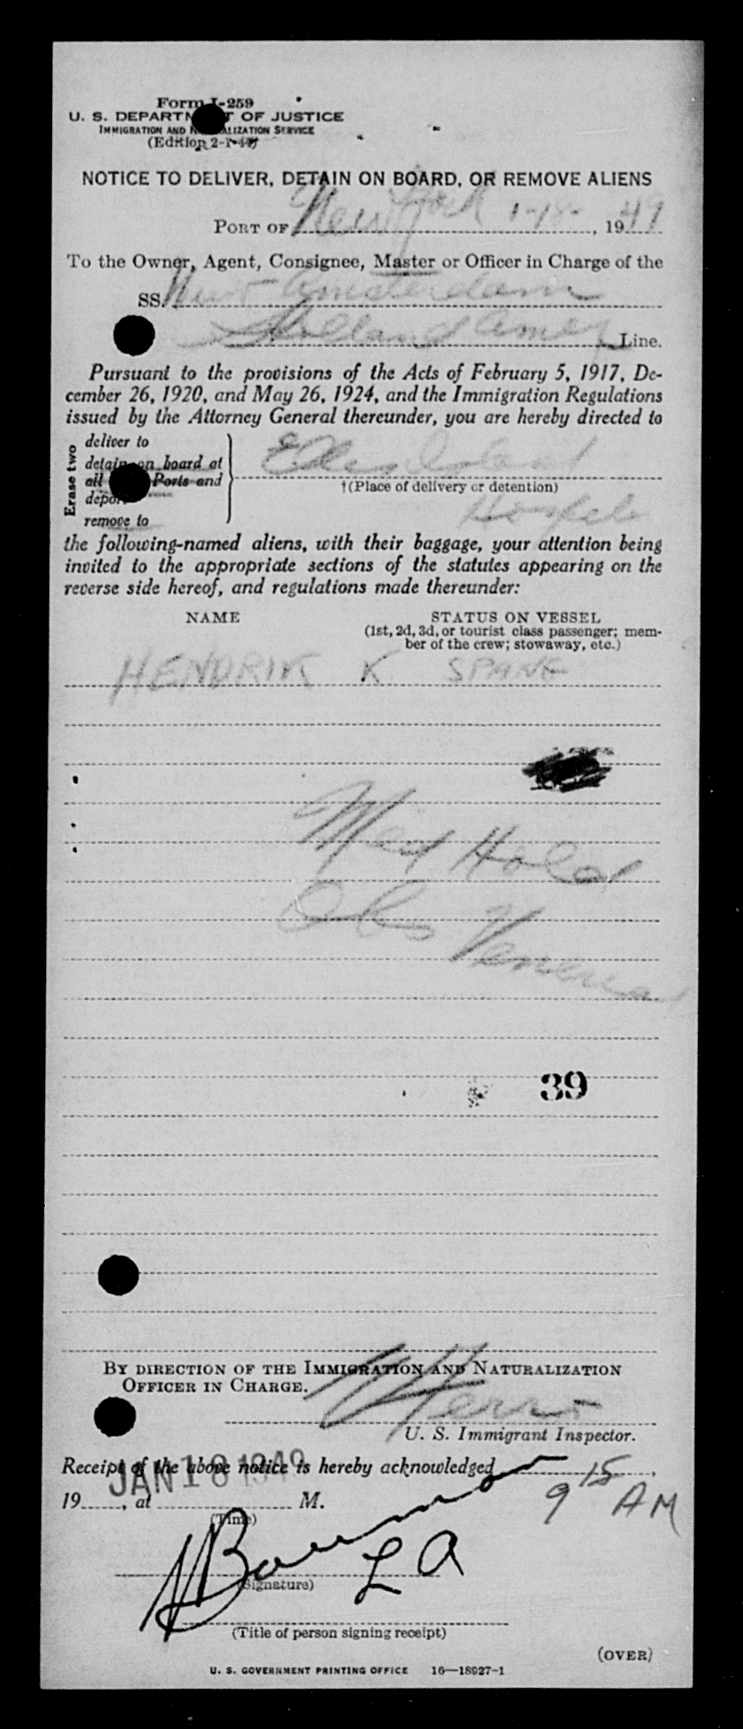 Form I-259
U. S. DEPARTMENT OF JUSTICE
IMMIGRATION AND NATURALIZATION SERVICE
(Edition 2-1-44)
NOTICE TO DELIVER, DETAIN ON BOARD, OR REMOVE ALIENS
PORT OF New York 1-18-, 1949
To the Owner, Agent, Consignee, Master or Officer in Charge of the
SS. Nieuw Amsterdam
Holland Amer Line.
Pursuant to the provisions of the Acts of February 5, 1917, De-
cember 26, 1920, and May 26, 1924, and the Immigration Regulations
issued by the Attorney General thereunder, you are hereby directed to
Erase two
deliver to
detain on board at
all Ports and
deport
remove to
Ellis Island
†(Place of delivery or detention)
Hospital
the following-named aliens, with their baggage, your attention being
invited to the appropriate sections of the statutes appearing on the
reverse side hereof, and regulations made thereunder:
NAME STATUS ON VESSEL
(1st, 2d, 3d, or tourist class passenger; mem-
ber of the crew; stowaway, etc.)
HENDRIK K
Med Hold
Obs Venereal
39
BY DIRECTION OF THE IMMIGRATION AND NATURALIZATION
OFFICER IN CHARGE.
U. S. Immigrant Inspector.
Receipt of the above notice is hereby acknowledged
JAN 18 1949
9 15 AM
19, at M.
(Time)
Bouman
L A
(Signature)
(Title of person signing receipt)
(OVER)
U. S. GOVERNMENT PRINTING OFFICE 16—18927-1